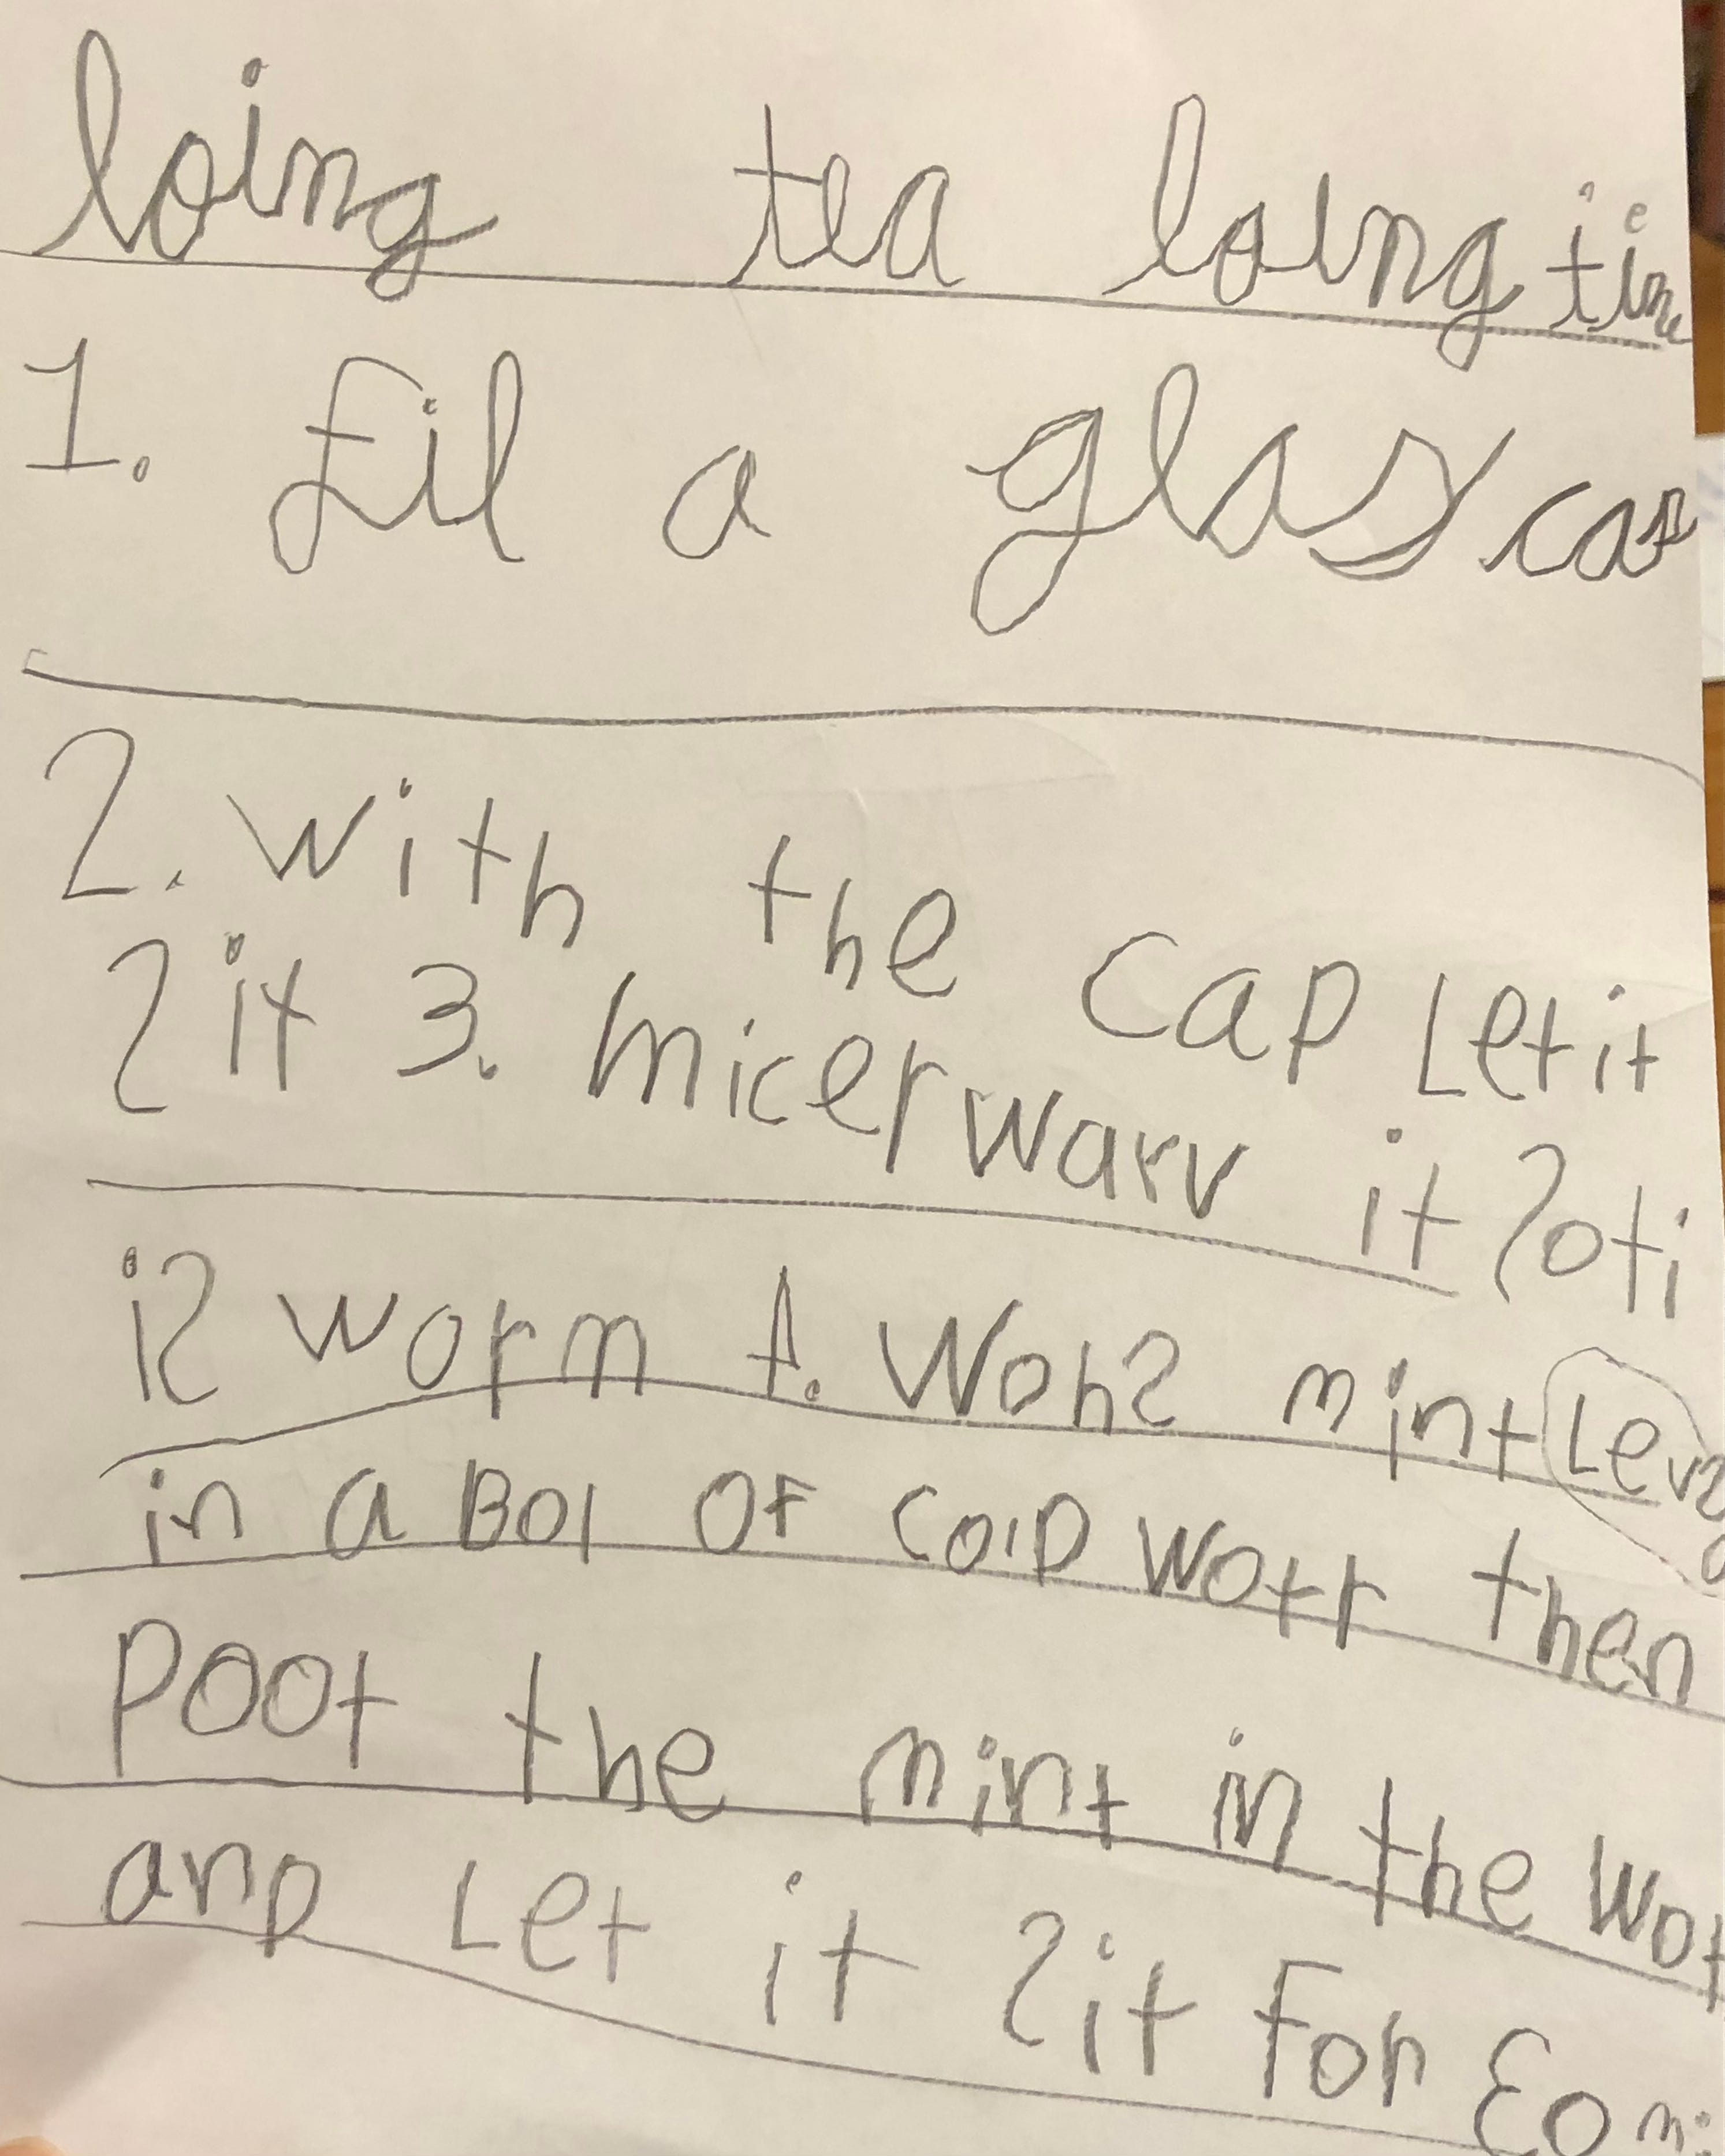 loing tea loing time
1. fil a glas cap
2. with the cap Let it
sit 3. micerwarv it soti
is worm 4. Wohs mint Levs
in a Bol OF colD wotr then
Poot the mint in the wot
anD Let it sit For 30 mi